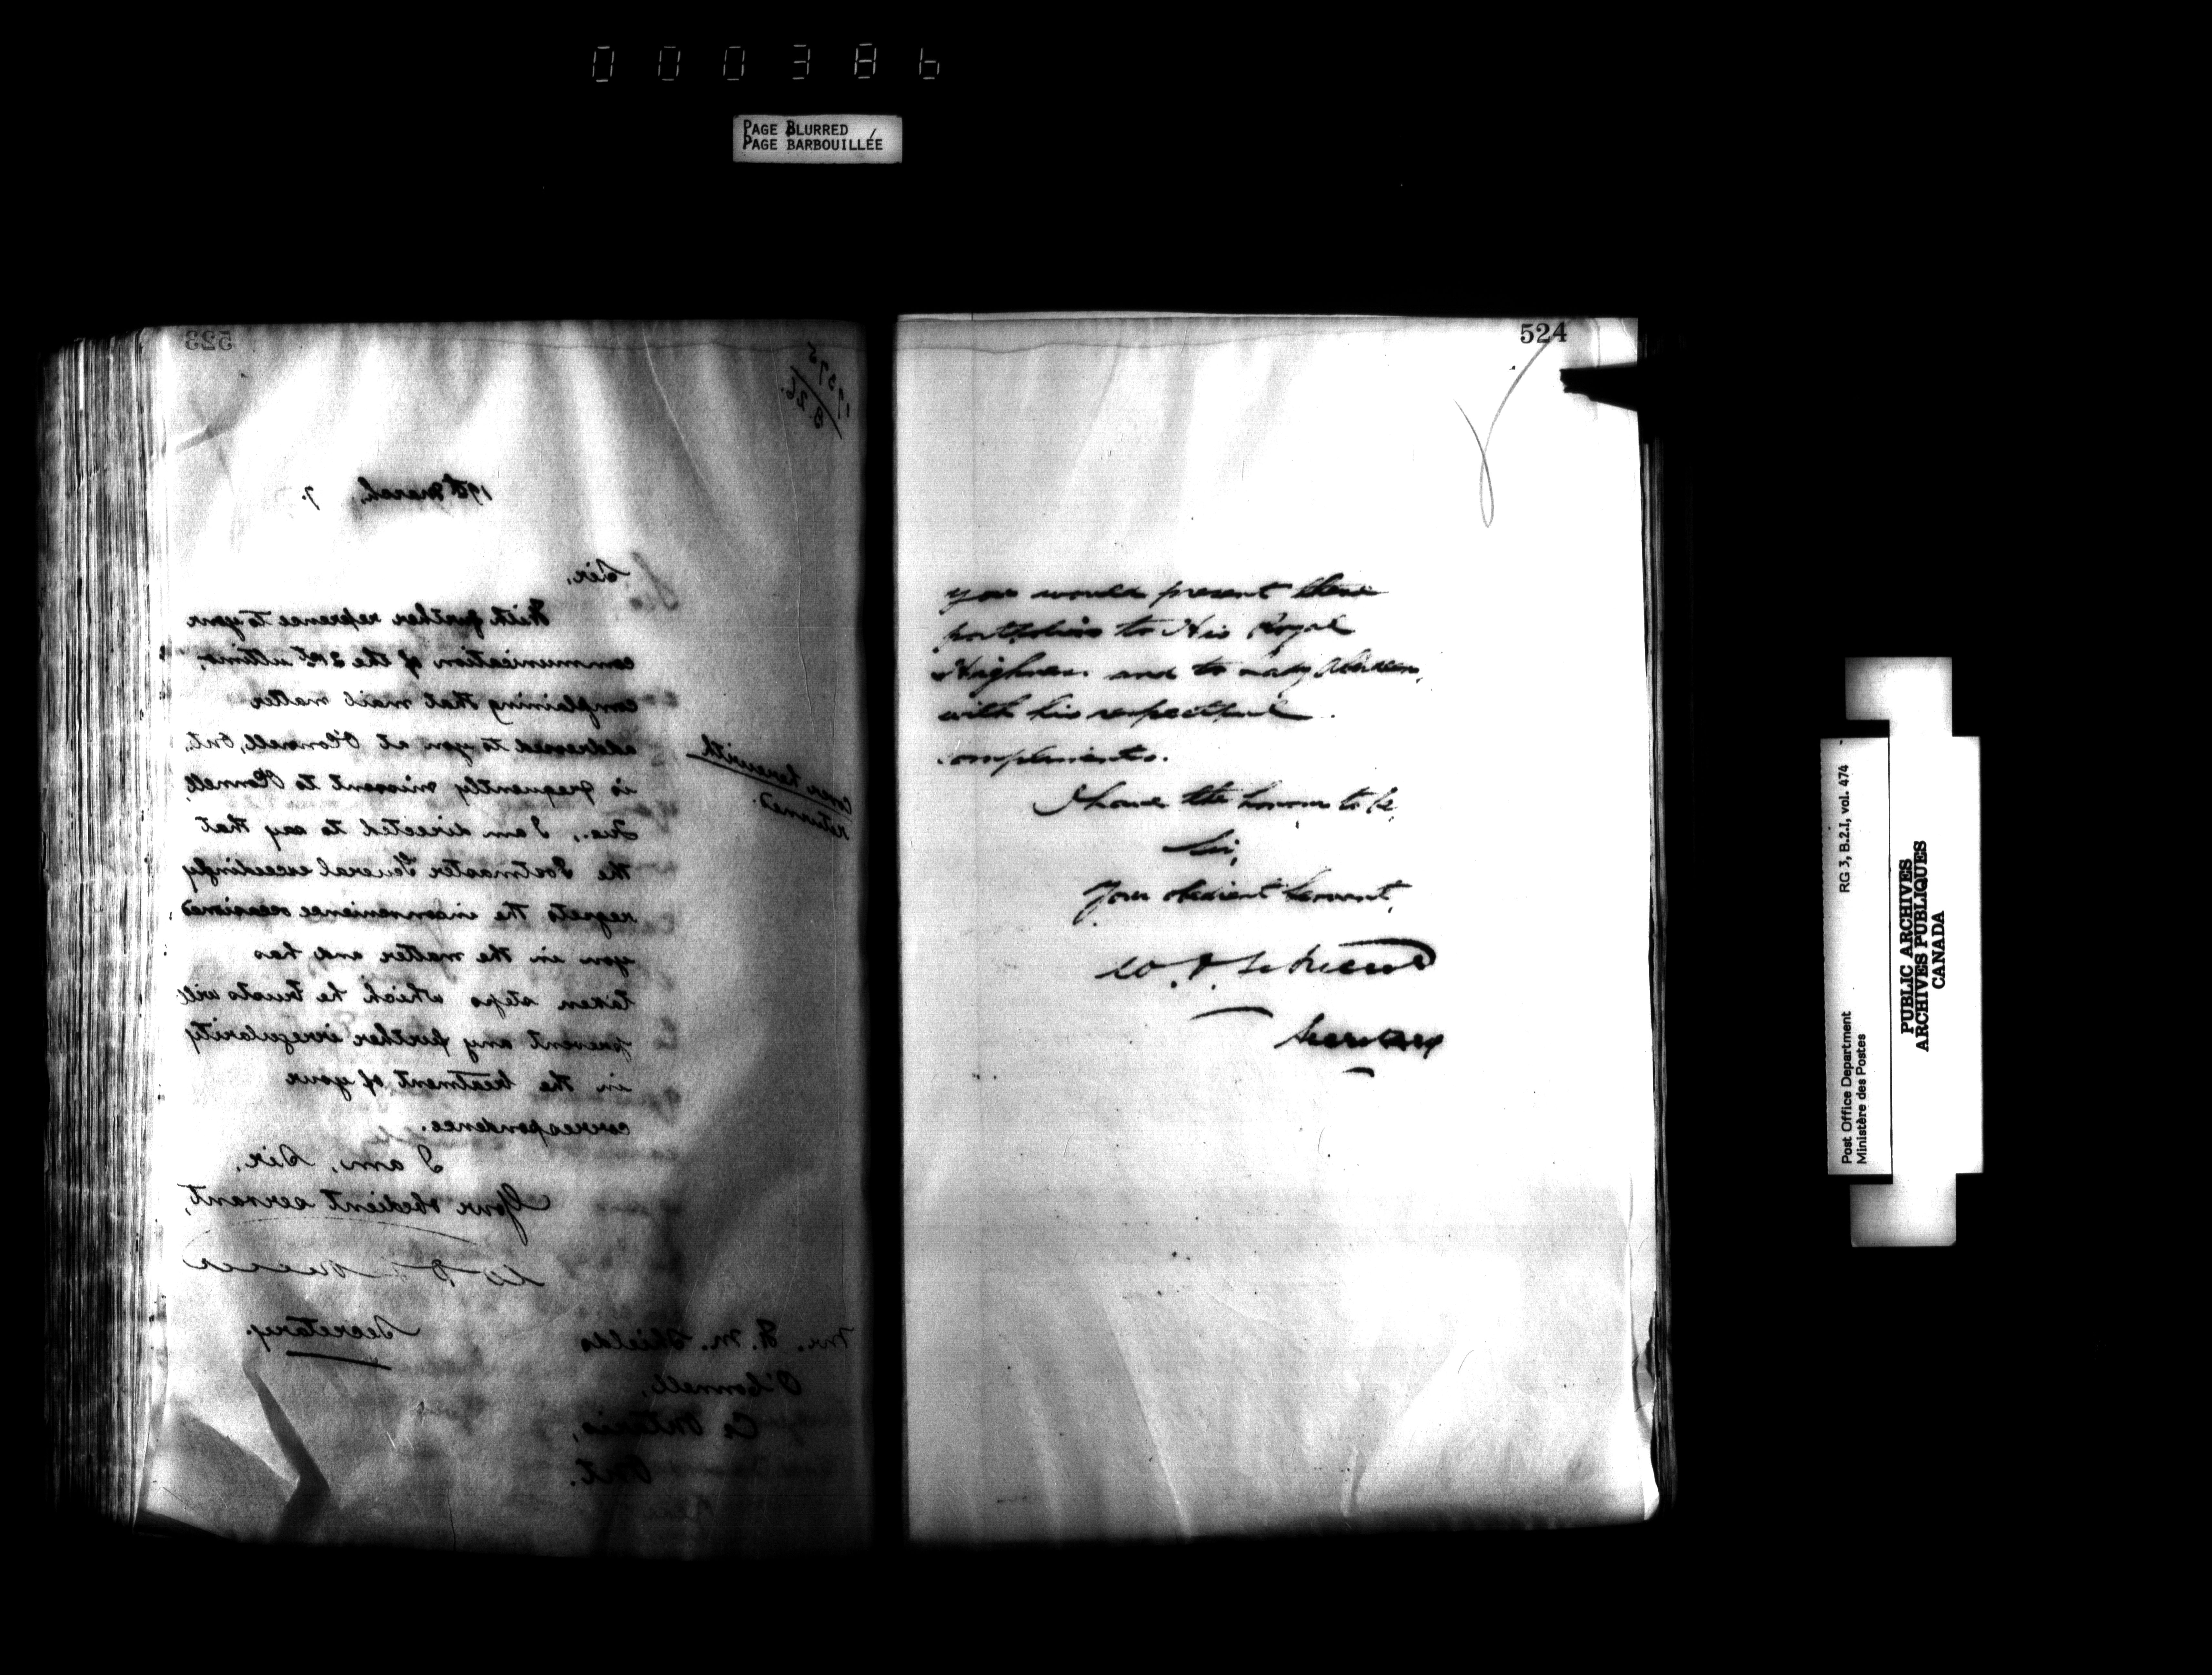 000386
PAGE BLURRED
PAGE BARBOUILLÉE
523
8.26.
19th March, 7.
Sir,
With further reference to your
communication of the 21st ultimo,
complaining that mail matter
addressed to you at O'Connell, Ont.,
is frequently missent to O'Connell,
Que., I am directed to say that
the Postmaster General exceedingly
regrets the inconvenience occasioned
you in the matter and has
taken steps which he trusts will
prevent any further irregularity
in the treatment of your
correspondence.
I am, Sir,
Your obedient servant,
Secretary.
Cover herewith
returned.
Mr. H. M. Shields
O'Connell,
Co Ontario,
Ont.
524
you would present these
portfolios to His Royal
Highness and to Lady Aberdeen,
with his respectful
compliments.
I have the honour to be,
Sir,
Your obedient Servant,
Secretary
Post Office Department
Ministère des Postes
RG 3, B.2.I, vol. 474
PUBLIC ARCHIVES
ARCHIVES PUBLIQUES
CANADA